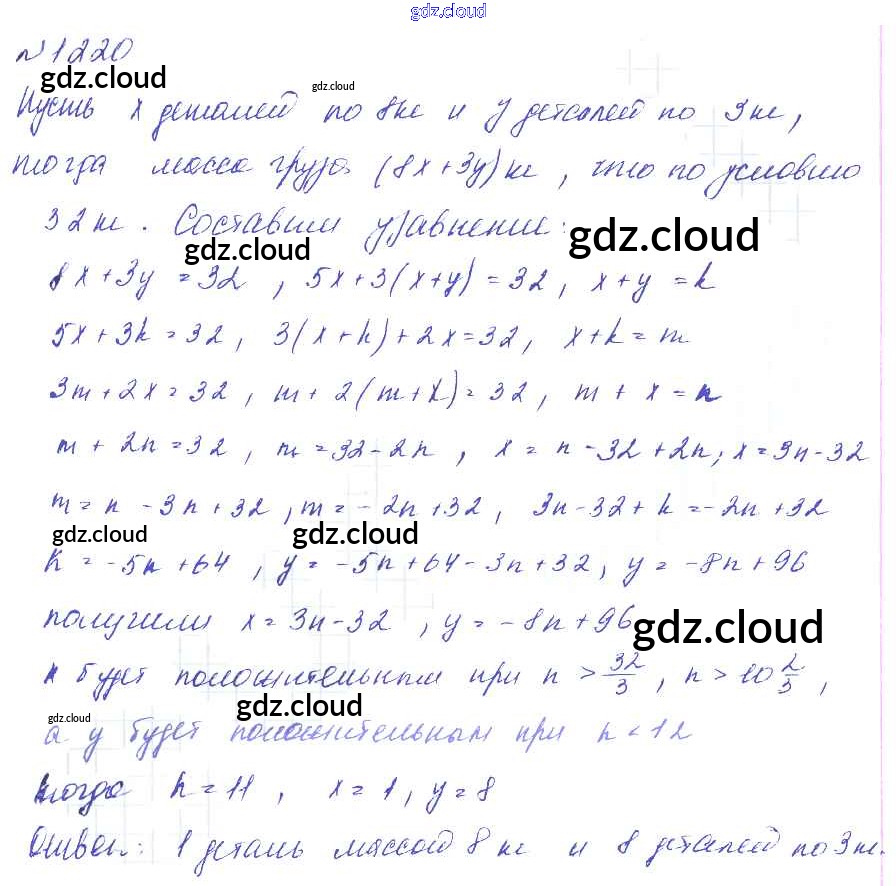 gdz.cloud
№1220
gdz.cloud
gdz.cloud
Пусть x деталей по 8кг и y деталей по 3кг,
тогда масса груза (8x+3y)кг, что по условию
32кг. Составим уравнение:
gdz.cloud
gdz.cloud
8x+3y=32, 5x+3(x+y)=32, x+y=k
5x+3k=32, 3(x+k)+2x=32, x+k=m
3m+2x=32, m+2(m+x)=32, m+x=n
m+2n=32, m=32-2n, x=n-32+2n; x=3n-32
m=n-3n+32, m=-2n+32, 3n-32+k=-2n+32
gdz.cloud
gdz.cloud
k=-5n+64, y=-5n+64-3n+32, y=-8n+96
получили x=3n-32, y=-8n+96
gdz.cloud
x будет положительным при n>32/3, n>10 2/3,
gdz.cloud
gdz.cloud
а y будет положительным при n<12
тогда n=11, x=1, y=8
Ответ: 1 деталь массой 8кг и 8 деталей по 3кг.